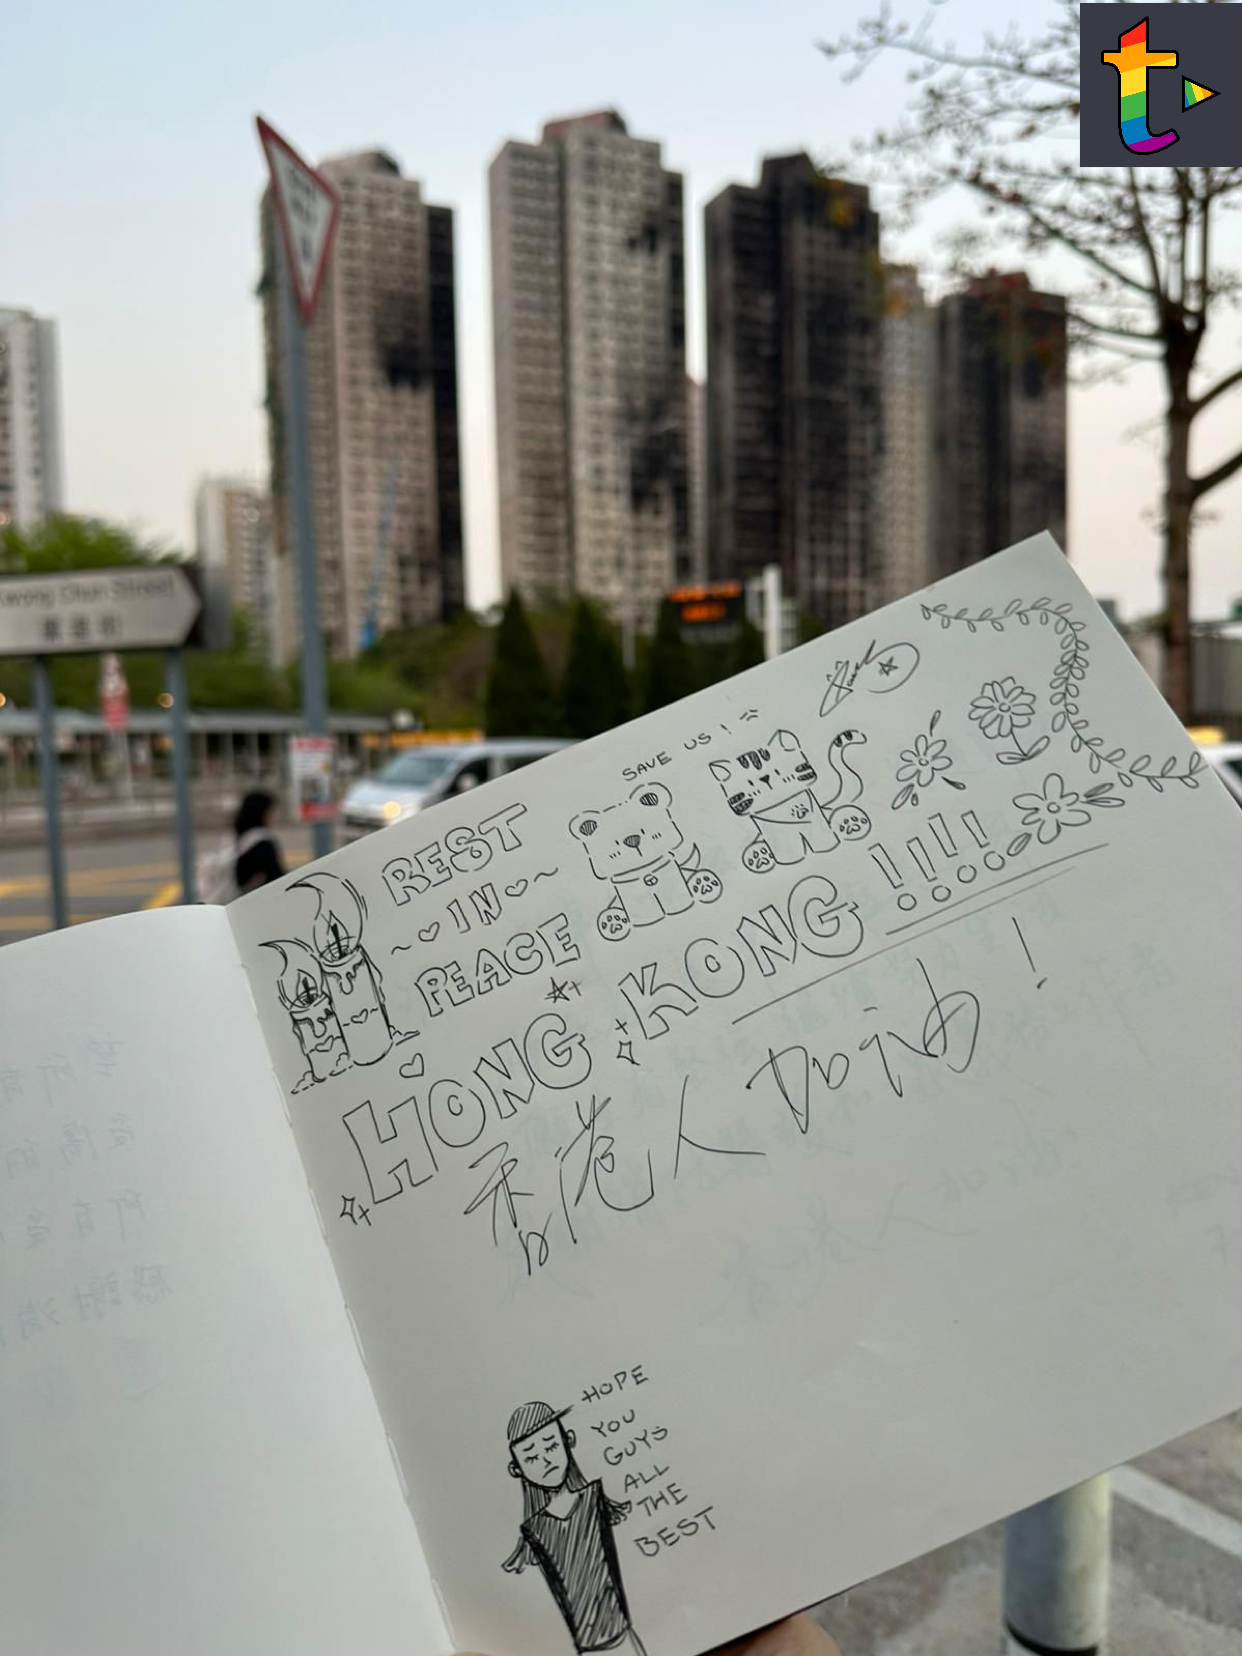 Kwong Chun Street
SAVE US!
REST
IN
PEACE
HONG KONG!!!!
香港人加油!
HOPE
YOU
GUYS
ALL
THE
BEST
t